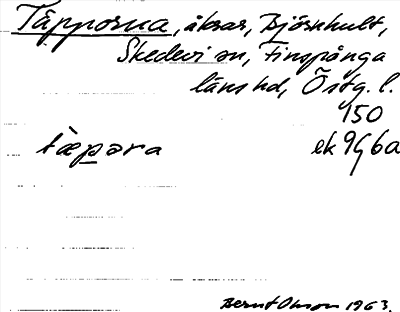 Täpporna, åkrar, Björkhult,
Skedevi sn, Finspånga
läns hd, Östg. l.
450
tæpəra ek 9G6a
Bernt Olsson 1963.